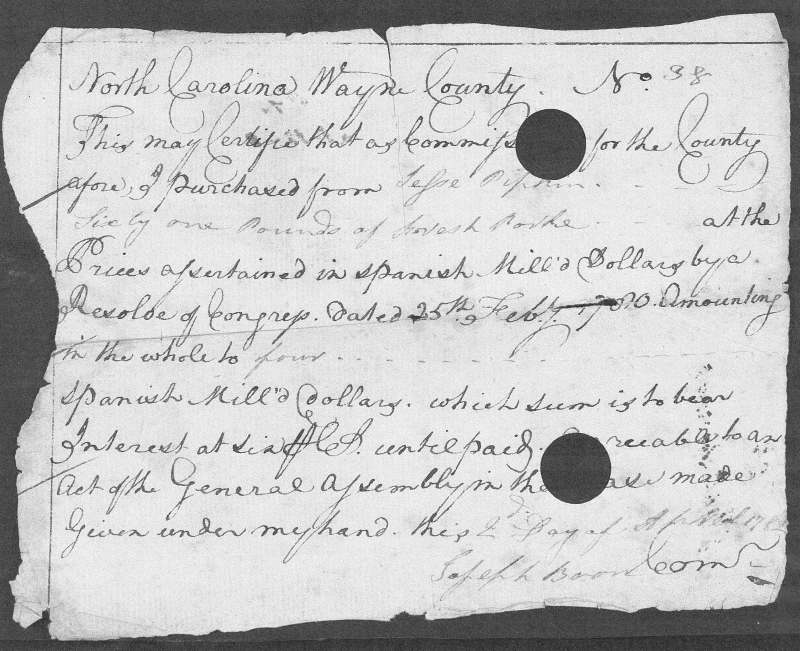 North Carolina Wayne County. No. 38
This may Certifie that as Commiss for the County
afore,d purchased from Jesse
Sixty one Pounds of fresh Porke at the
Prices assertained in spanish Mill'd Dollars by a
Resolve of Congress. Dated 25th Feby 1780. Amounting
in the whole to four
spanish Mill'd Dollars. which sum is to bear
Interest at six until paid. to an
Act of the General Assembly in the Case made
Given under my hand. this 2d Day of April
Joseph Boon Com